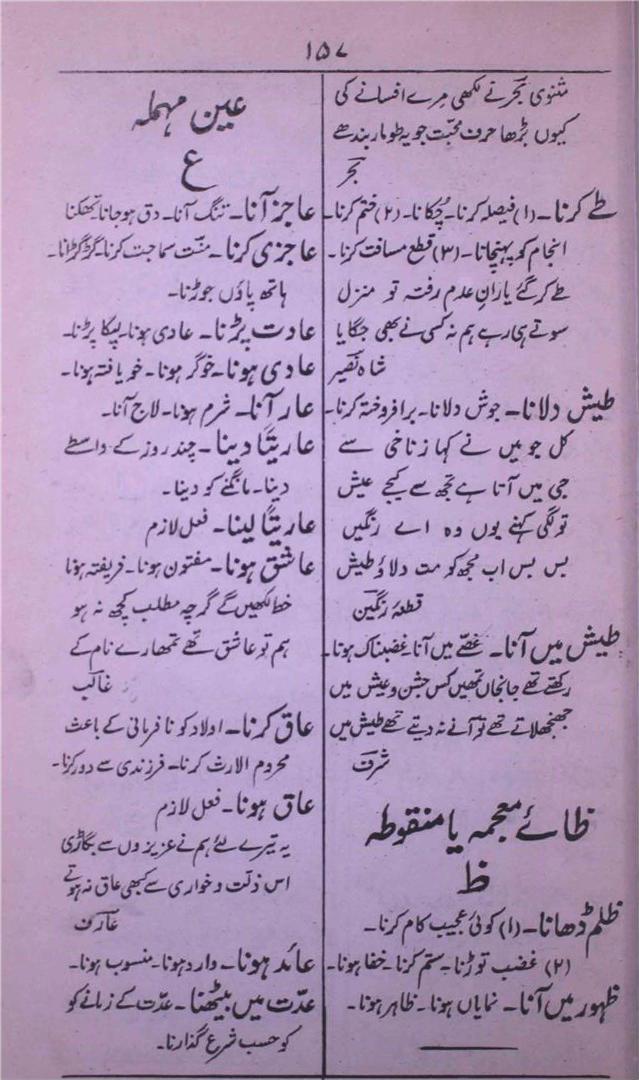 ۱۵۷
مثنوی بحر نے لکھی مرے افسانے کی
کیوں بڑھا حرف محبت جو یہ طومار بندھے
بحر
طے کرنا۔ (۱) فیصلہ کرنا۔ چُکانا۔ (۲) ختم کرنا۔
انجام کو پہنچانا۔ (۳) قطع مسافت کرنا۔
طے کر گئے یارانِ عدم رفتہ تو منزل
سوتے ہی رہے ہم نہ کسی نے بھی جگایا
شاہ نصیر
طیش دلانا۔ جوش دلانا۔ برافروختہ کرنا۔
کل جو میں نے کہا زناخی سے
جی میں آتا ہے تجھ سے کیجے عیش
تو لگی کہنے یوں وہ اے رنگیں
بس بس اب مجھ کو مت دلاؤ طیش
قطعۂ رنگین
طیش میں آنا۔ غصے میں آنا۔ غضبناک ہونا۔
رکھتے تھے جانجاں تمھیں کس جشن و عیش میں
جھنجھلاتے تھے تو آنے نہ دیتے تھے طیش میں
شرف
ظائے معجمہ یا منقوطہ
ظ
ظلم ڈھانا۔ (۱) کوئی عجیب کام کرنا۔
(۲) غضب توڑنا۔ ستم کرنا۔ خفا ہونا۔
ظہور میں آنا۔ نمایاں ہونا۔ ظاہر ہونا۔
عین مہملہ
ع
عاجز آنا۔ تنگ آنا۔ دق ہوجانا۔ تھکنا
عاجزی کرنا۔ منّت سماجت کرنا۔ گڑگڑانا۔
ہاتھ پاؤں جوڑنا۔
عادت پڑنا۔ عادی ہونا۔ لپکا پڑنا۔
عادی ہونا۔ خوگر ہونا۔ خو یافتہ ہونا۔
عار آنا۔ شرم ہونا۔ لاج آنا۔
عاریتاً دینا۔ چند روز کے واسطے
دینا۔ مانگنے کو دینا۔
عاریتاً لینا۔ فعل لازم
عاشق ہونا۔ مفتون ہونا۔ فریفتہ ہونا
خط لکھیں گے گرچہ مطلب کچھ نہ ہو
ہم تو عاشق تھے تمھارے نام کے
غالب
عاق کرنا۔ اولاد کو نافرمانی کے باعث
محروم الارث کرنا۔ فرزندی سے دور کرنا۔
عاق ہونا۔ فعل لازم
یہ تیرے لئے ہم نے عزیزوں سے بگاڑی
اس ذلت و خواری سے کبھی عاق نہ ہوتے
عارف
عائد ہونا۔ وارد ہونا۔ منسوب ہونا۔
عدّت میں بیٹھنا۔ عدّت کے زمانے کو
کو حسب شرع گذارنا۔